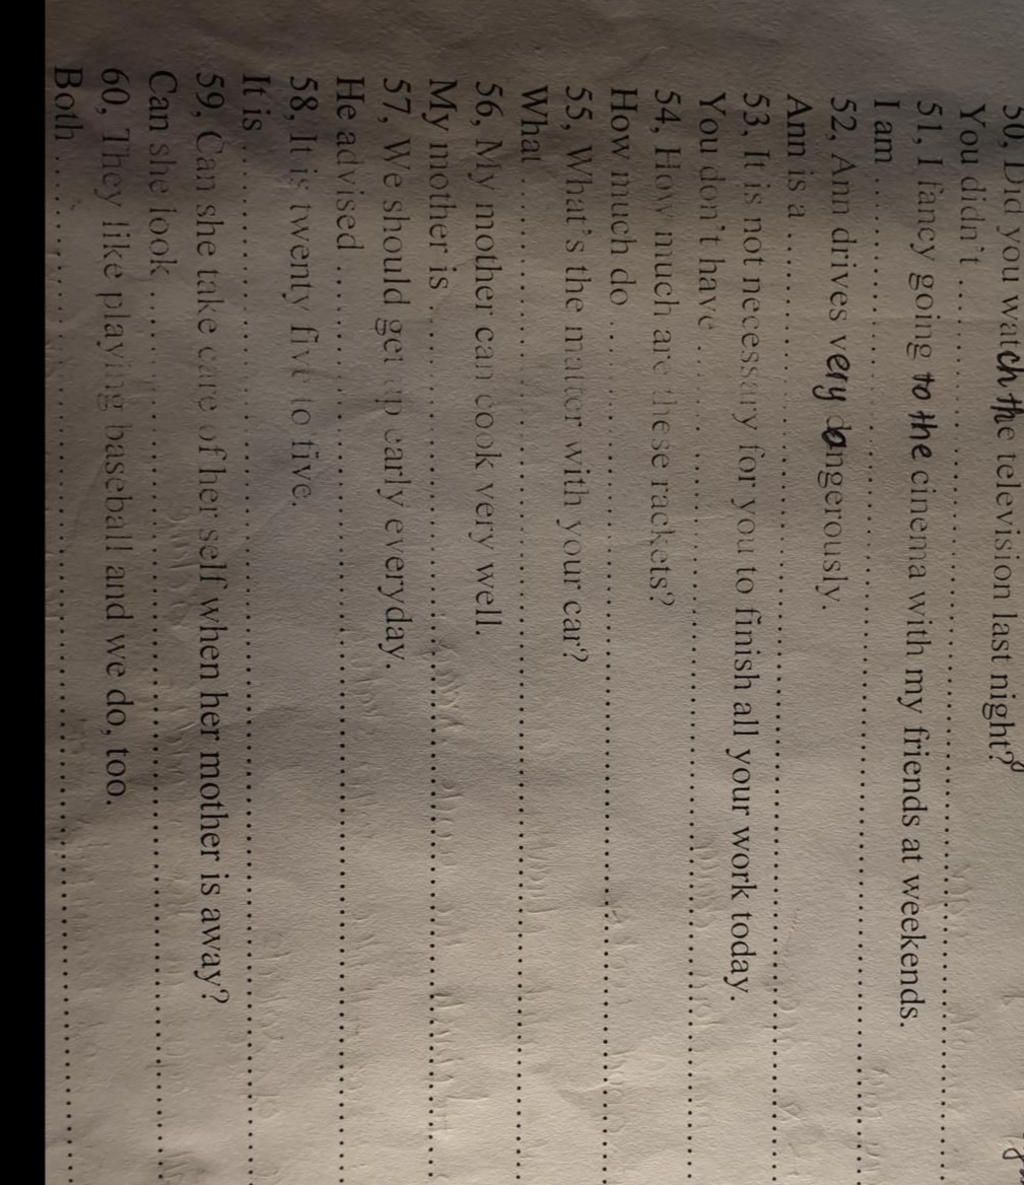 50, Did you watch the television last night?
You didn't ........................................
51, I fancy going to the cinema with my friends at weekends.
I am ........................................
52, Ann drives very dangerously.
Ann is a ........................................
53, It is not necessary for you to finish all your work today.
You don't have ........................................
54, How much are these rackets?
How much do ........................................
55, What's the matter with your car?
What ........................................
56, My mother can cook very well.
My mother is ........................................
57, We should get up early everyday.
He advised ........................................
58, It is twenty five to five.
It is ........................................
59, Can she take care of her self when her mother is away?
Can she look ........................................
60, They like playing baseball and we do, too.
Both ........................................